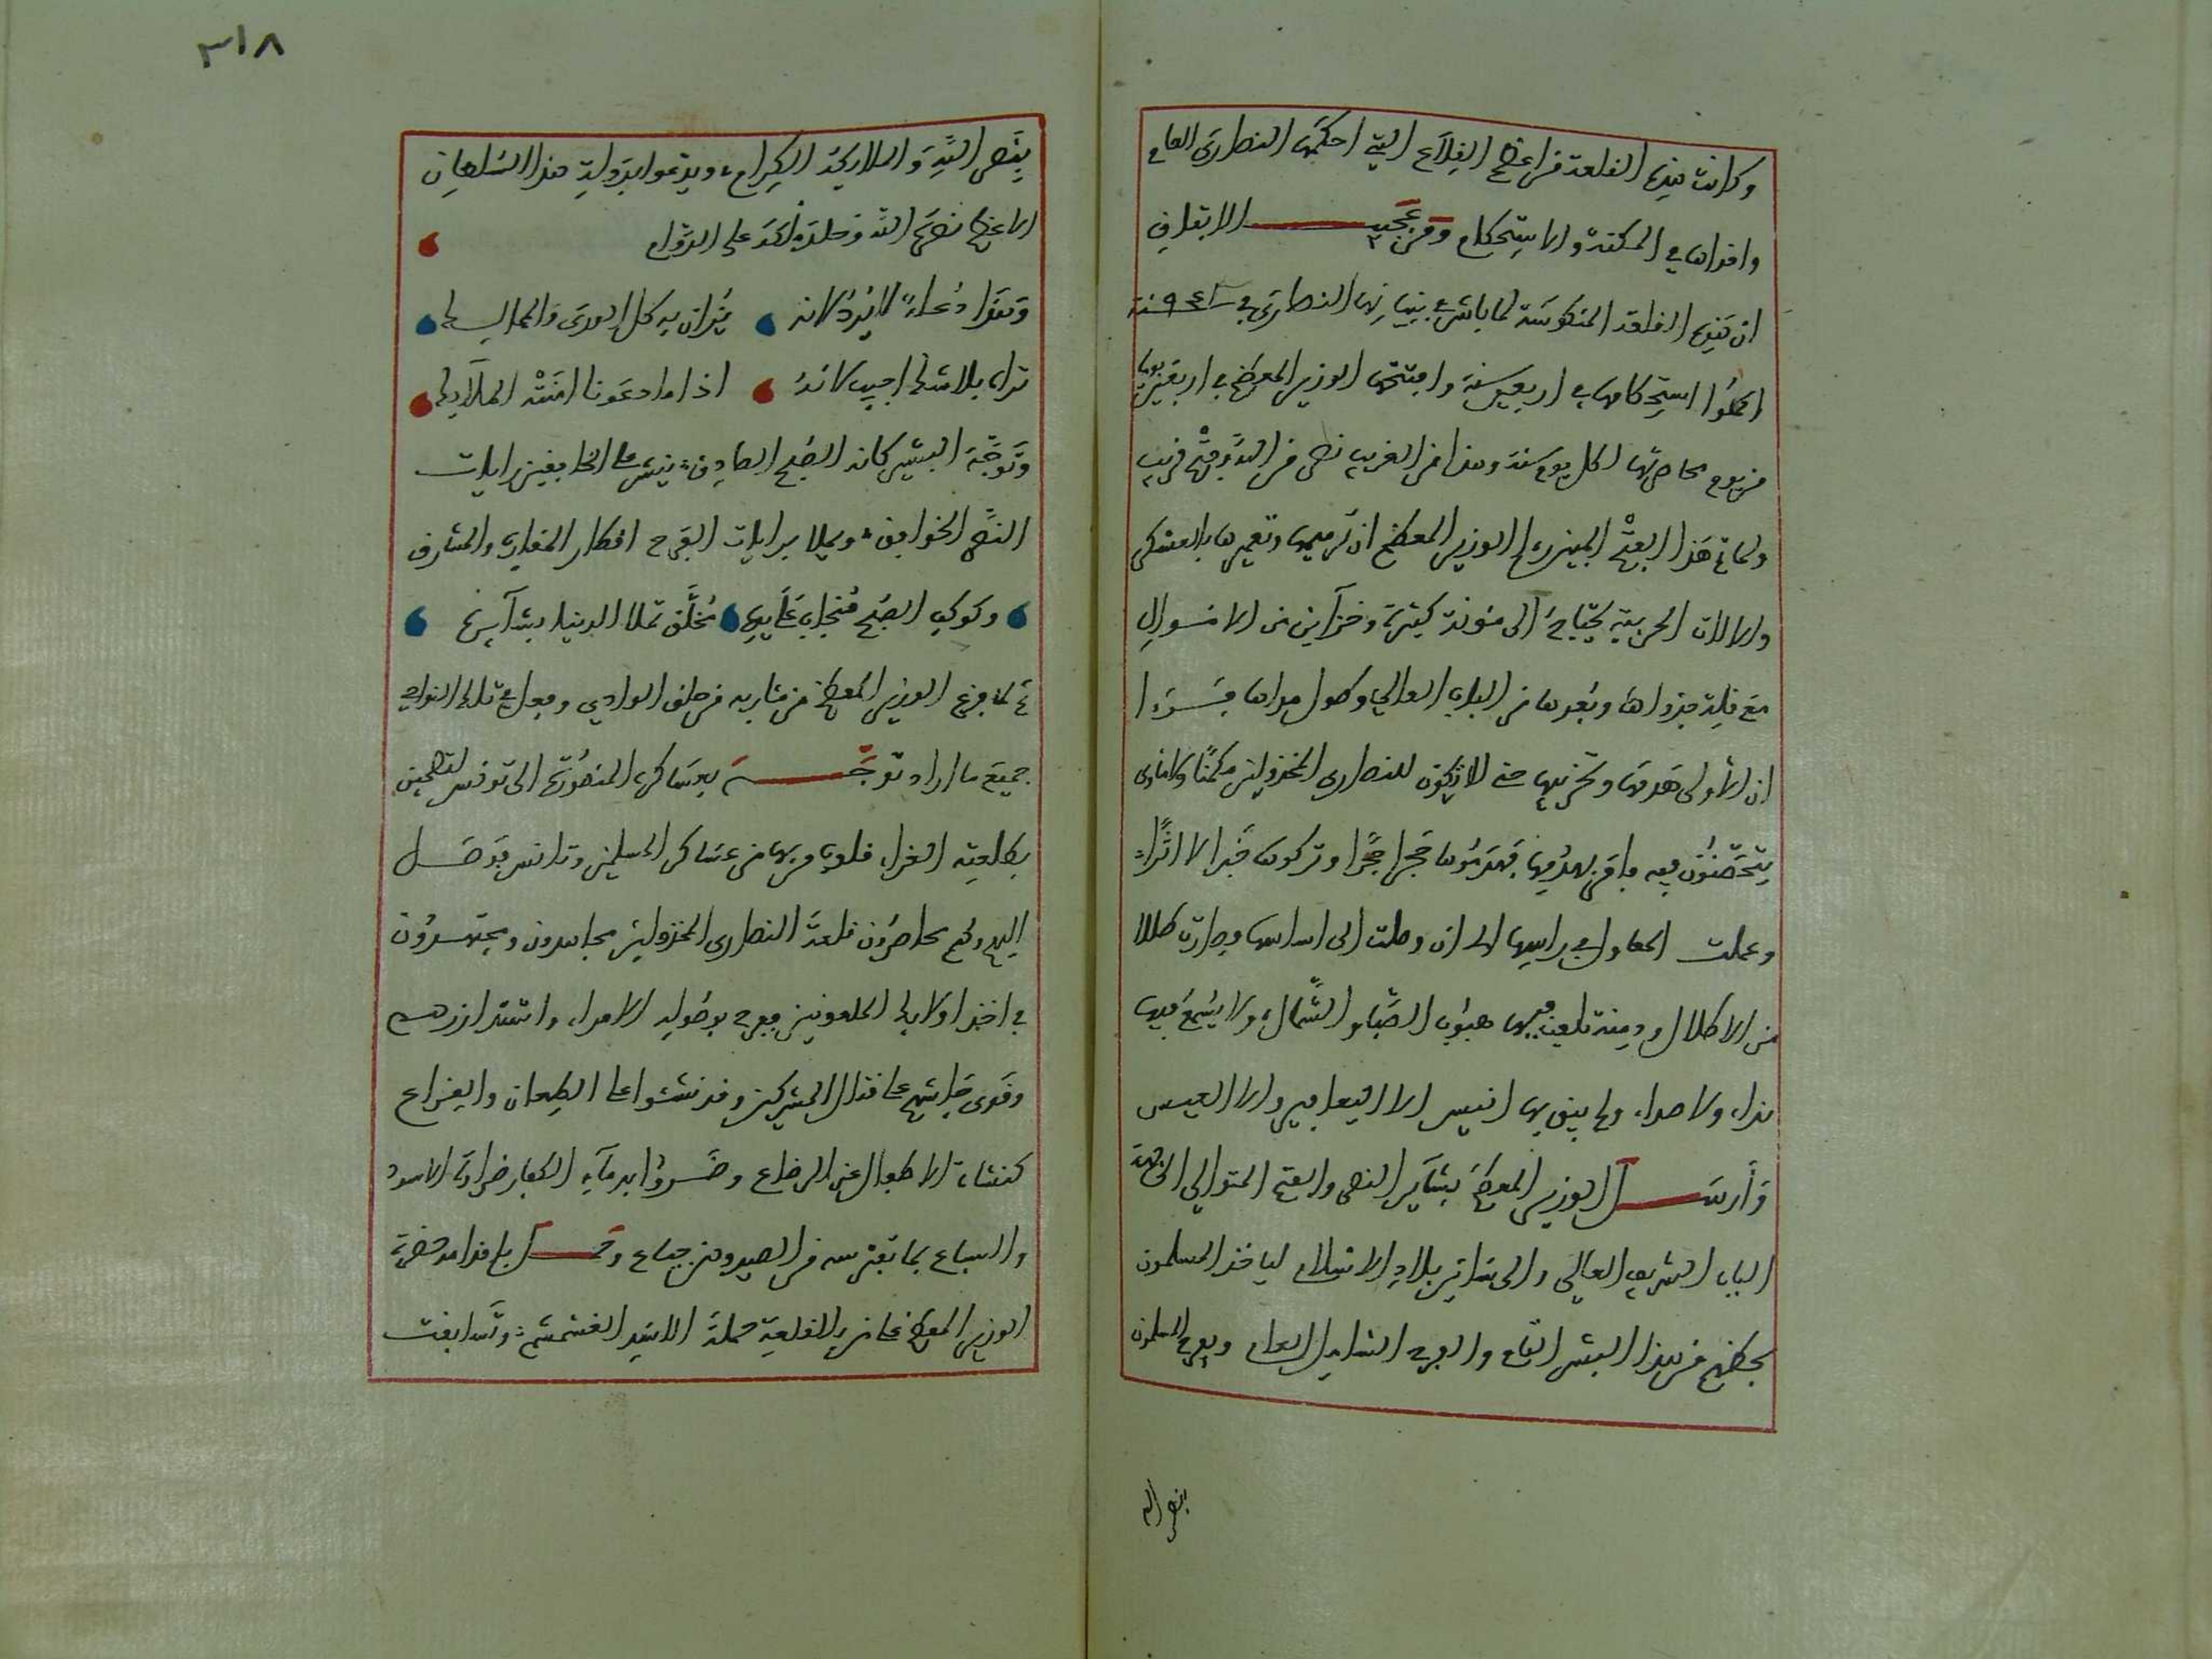 وكانت هذه القلعة من اعظم القلاع التي احكمها النصارى
واقواها في المكنة والاستحكام ومن عجيب الاتفاق
ان هذه القلعة المنكوسة لما باشر بنيانها النصارى في سنة
اكملوا استحكامها في اربعين سنة وافتتحها الوزير المعظم في اربعين يوما
من يوم محاصرتها لكل يوم سنة وهذا من الغريب نصر من الله وفتح قريب
ولما تم هذا الفتح المبين راى الوزير المعظم ان ترميمها وتعميرها بالعسكر
والالات الحربية يحتاج الى مئونة كثيرة وخزآين من الاموال
مع قلة جدواها وبعدها من الباب العالي وطول مداها فراى
ان الأولى هدمها وتخريبها حتى لا يكون للنصارى المخذولين مكمنا ولا ماوى
يتحصنون فيه فامر بهدمها فهدموها حجرا حجرا وتركوها خبرا لا اثرا
وعملت المعاول في راسها الى ان وصلت الى اساسها وصارت طللا
من الاطلال ودمنة تلعب فيها هبوب الصبا والشمال ولا يسمع فيها
نداء ولا صداء ولم يبق بها انيس الا اليعافير والا العيس
وأرسل الوزير المعظم بشآير النصر والفتح المتوالي الى جهة
الباب الشريف العالي والى سائر بلاد الاسلام لياخذ المسلمون
بحظهم من هذا البشر التام والفرح الشامل العام ويفرح المسلمون
بنصر الله
٣١٨
بنصر الله والملايكة الكرام، ويدعوا بدولة هذا السلطان
الاعظم نصره الله وخلد ملكه على الدوام
وهذا دعاء لا يرد لانه يزان به كل الورى والممالك
تراه بلا شك اجيب لانه اذا ما دعونا امنته الملآيك
وتوجه البشير كانه الصبح الصادق، ينشر على الخافقين رايات
النصر الخوافق، ويملا برايات الفرح اقطار المغارب والمشارق
وكوكب الصبح نجاب على يده مخلق تملا الدنيا بشآيره
ثم لما فرغ الوزير المعظم من مئاربه من حلق الوادي وفعل في تلك النوادي
جميع ما اراد توجه بعساكره المنصورة الى تونس لتطمين
بطلعته الغراء قلوب من بها من عساكر المسلمين وتانس فوصل
اليهم وهم محاصرون قلعة النصارى المخذولين مجاهدون ومجتهدون
في اخذ اولايك الملعونين ففرح بوصوله الامراء واشتد ازرهم
وقوى جاشهم على قتال المشركين وقد نشئوا على الطعان والقراع
كنشاة الاطفال عن الرضاع وضروا بدمآء الكفار ضراوة الاسود
والسباع بما تفترسه من الصيد وهن جياع وحمل باقدامه حضرة
الوزير المعظم على من بالقلعة حملة الاسد الغشمشم، وتسابقت